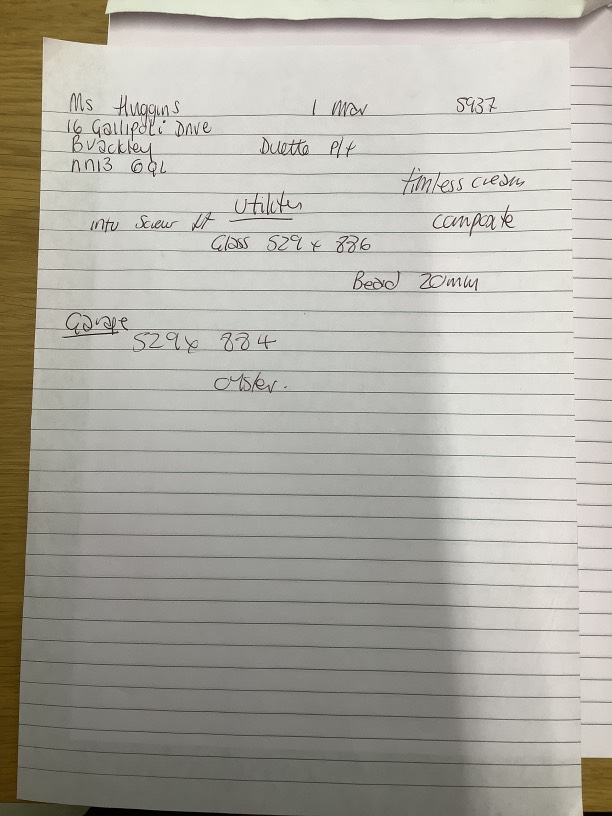 Ms Huggins 1 Mar 5937
16 Gallipoli Drive
Brackley Duette p/f
NN13 6QL
timless cream
Utility
into screw fit composite
Glass 529 x 886
Bead 20mm
Garage
529 x 884
oyster.